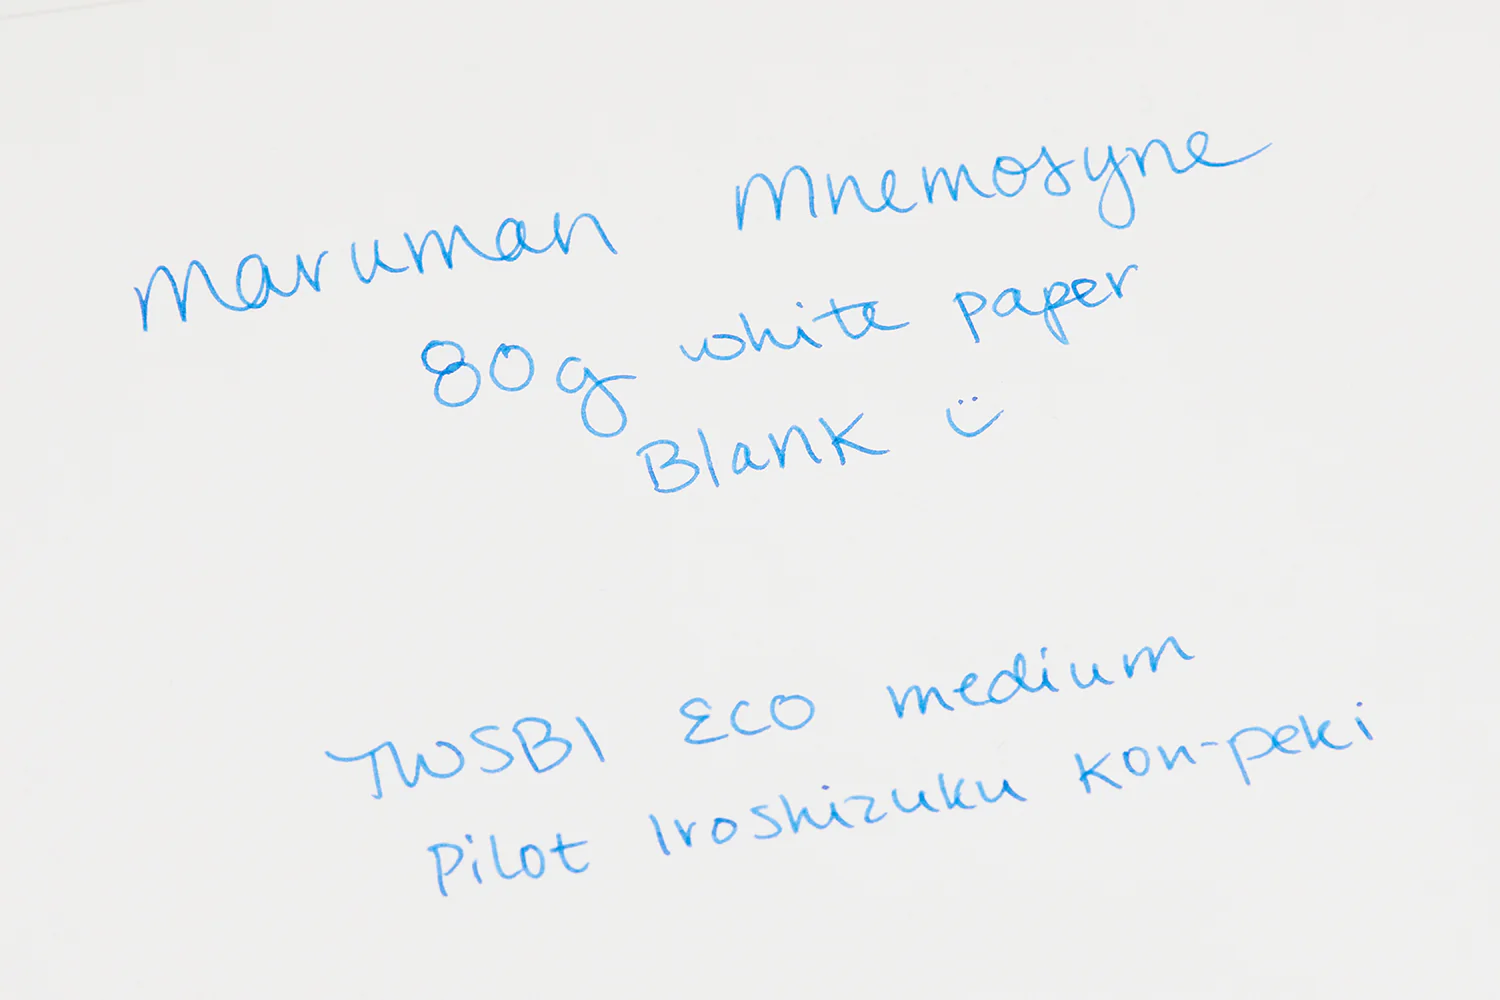 Maruman Mnemosyne
80g white paper
Blank ☺
TWSBI ECO medium
Pilot Iroshizuku Kon-peki